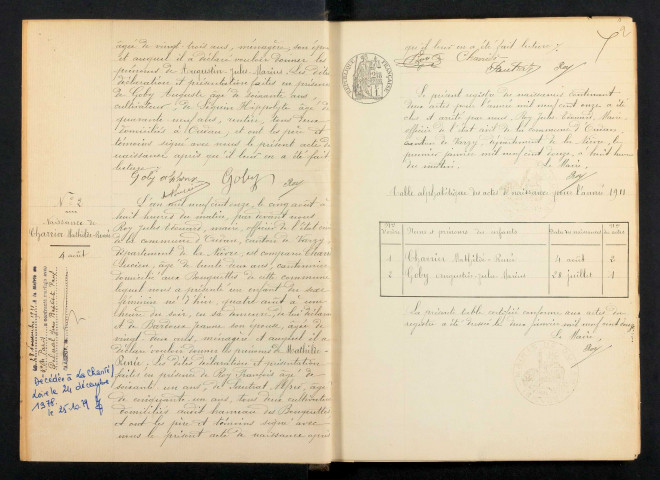 âgée de vingt trois ans, ménagère, son épouse
et auquel il a déclaré vouloir donner les
prénoms de Augustin Jules Marius. Les dites
déclaration et présentation faites en présence
de Goby Auguste âgé de soixante ans
cultivateur, de Seguin Hippolyte âgé de
quarante neuf ans, rentier, tous deux
domiciliés à Oudan, et ont les père et
témoins signé avec nous le présent acte de
naissance après qu'il leur en a été fait
lecture.
Goby Goby
Roy
N° 2
Naissance de
Charrier Mathilde Renée
4 août
L'an mil neuf cent onze, le cinq août à
huit heures du matin, par devant nous
Roy Jules Léonard, maire, officier de l'état civil
de la commune d'Oudan, canton de Varzy,
département de la Nièvre, est comparu Charrier
âgé de trente deux ans, cantonnier
domicilié aux Bouquettes de cette commune
lequel nous a présenté un enfant du sexe
féminin né d'hier, quatre août à une
heure du soir, en sa demeure, de lui déclarant
et de Jeanne son épouse, âgée de
vingt deux ans, ménagère et auquel il a
déclaré vouloir donner les prénoms de Mathilde
Renée. Les dites déclaration et présentation
faites en présence de Roy François âgé de
soixante un ans, de Sautrot âgé
de cinquante un ans, tous deux cultivateurs
domiciliés audit hameau des Bouquettes
et ont les père et témoins signé avec
nous le présent acte de naissance après
Décédée à La Charité
Loire le 24 décembre
1978
le 25.10.79
2
RÉPUBLIQUE FRANÇAISE
qu'il leur en a été fait lecture.
Charrier
Sautrot Roy
Le présent registre de naissances contenant
deux actes pour l'année mil neuf cent onze a été
clos et arrêté par nous, Roy Jules Léonard, Maire
officier de l'état civil de la commune d'Oudan
canton de Varzy, département de la Nièvre, le
premier janvier mil neuf cent douze, à huit heures
du matin.
Le Maire
Roy
Table alphabétique des actes de naissance pour l'année 1911
Nos d'ordre Noms et prénoms des enfants Date des naissances Nos des actes
1 Charrier Mathilde Renée 4 août 2
2 Goby Augustin Jules Marius 28 juillet 1
La présente table certifiée conforme aux actes du
registre a été dressée le deux janvier mil neuf cent douze
Le Maire
Roy